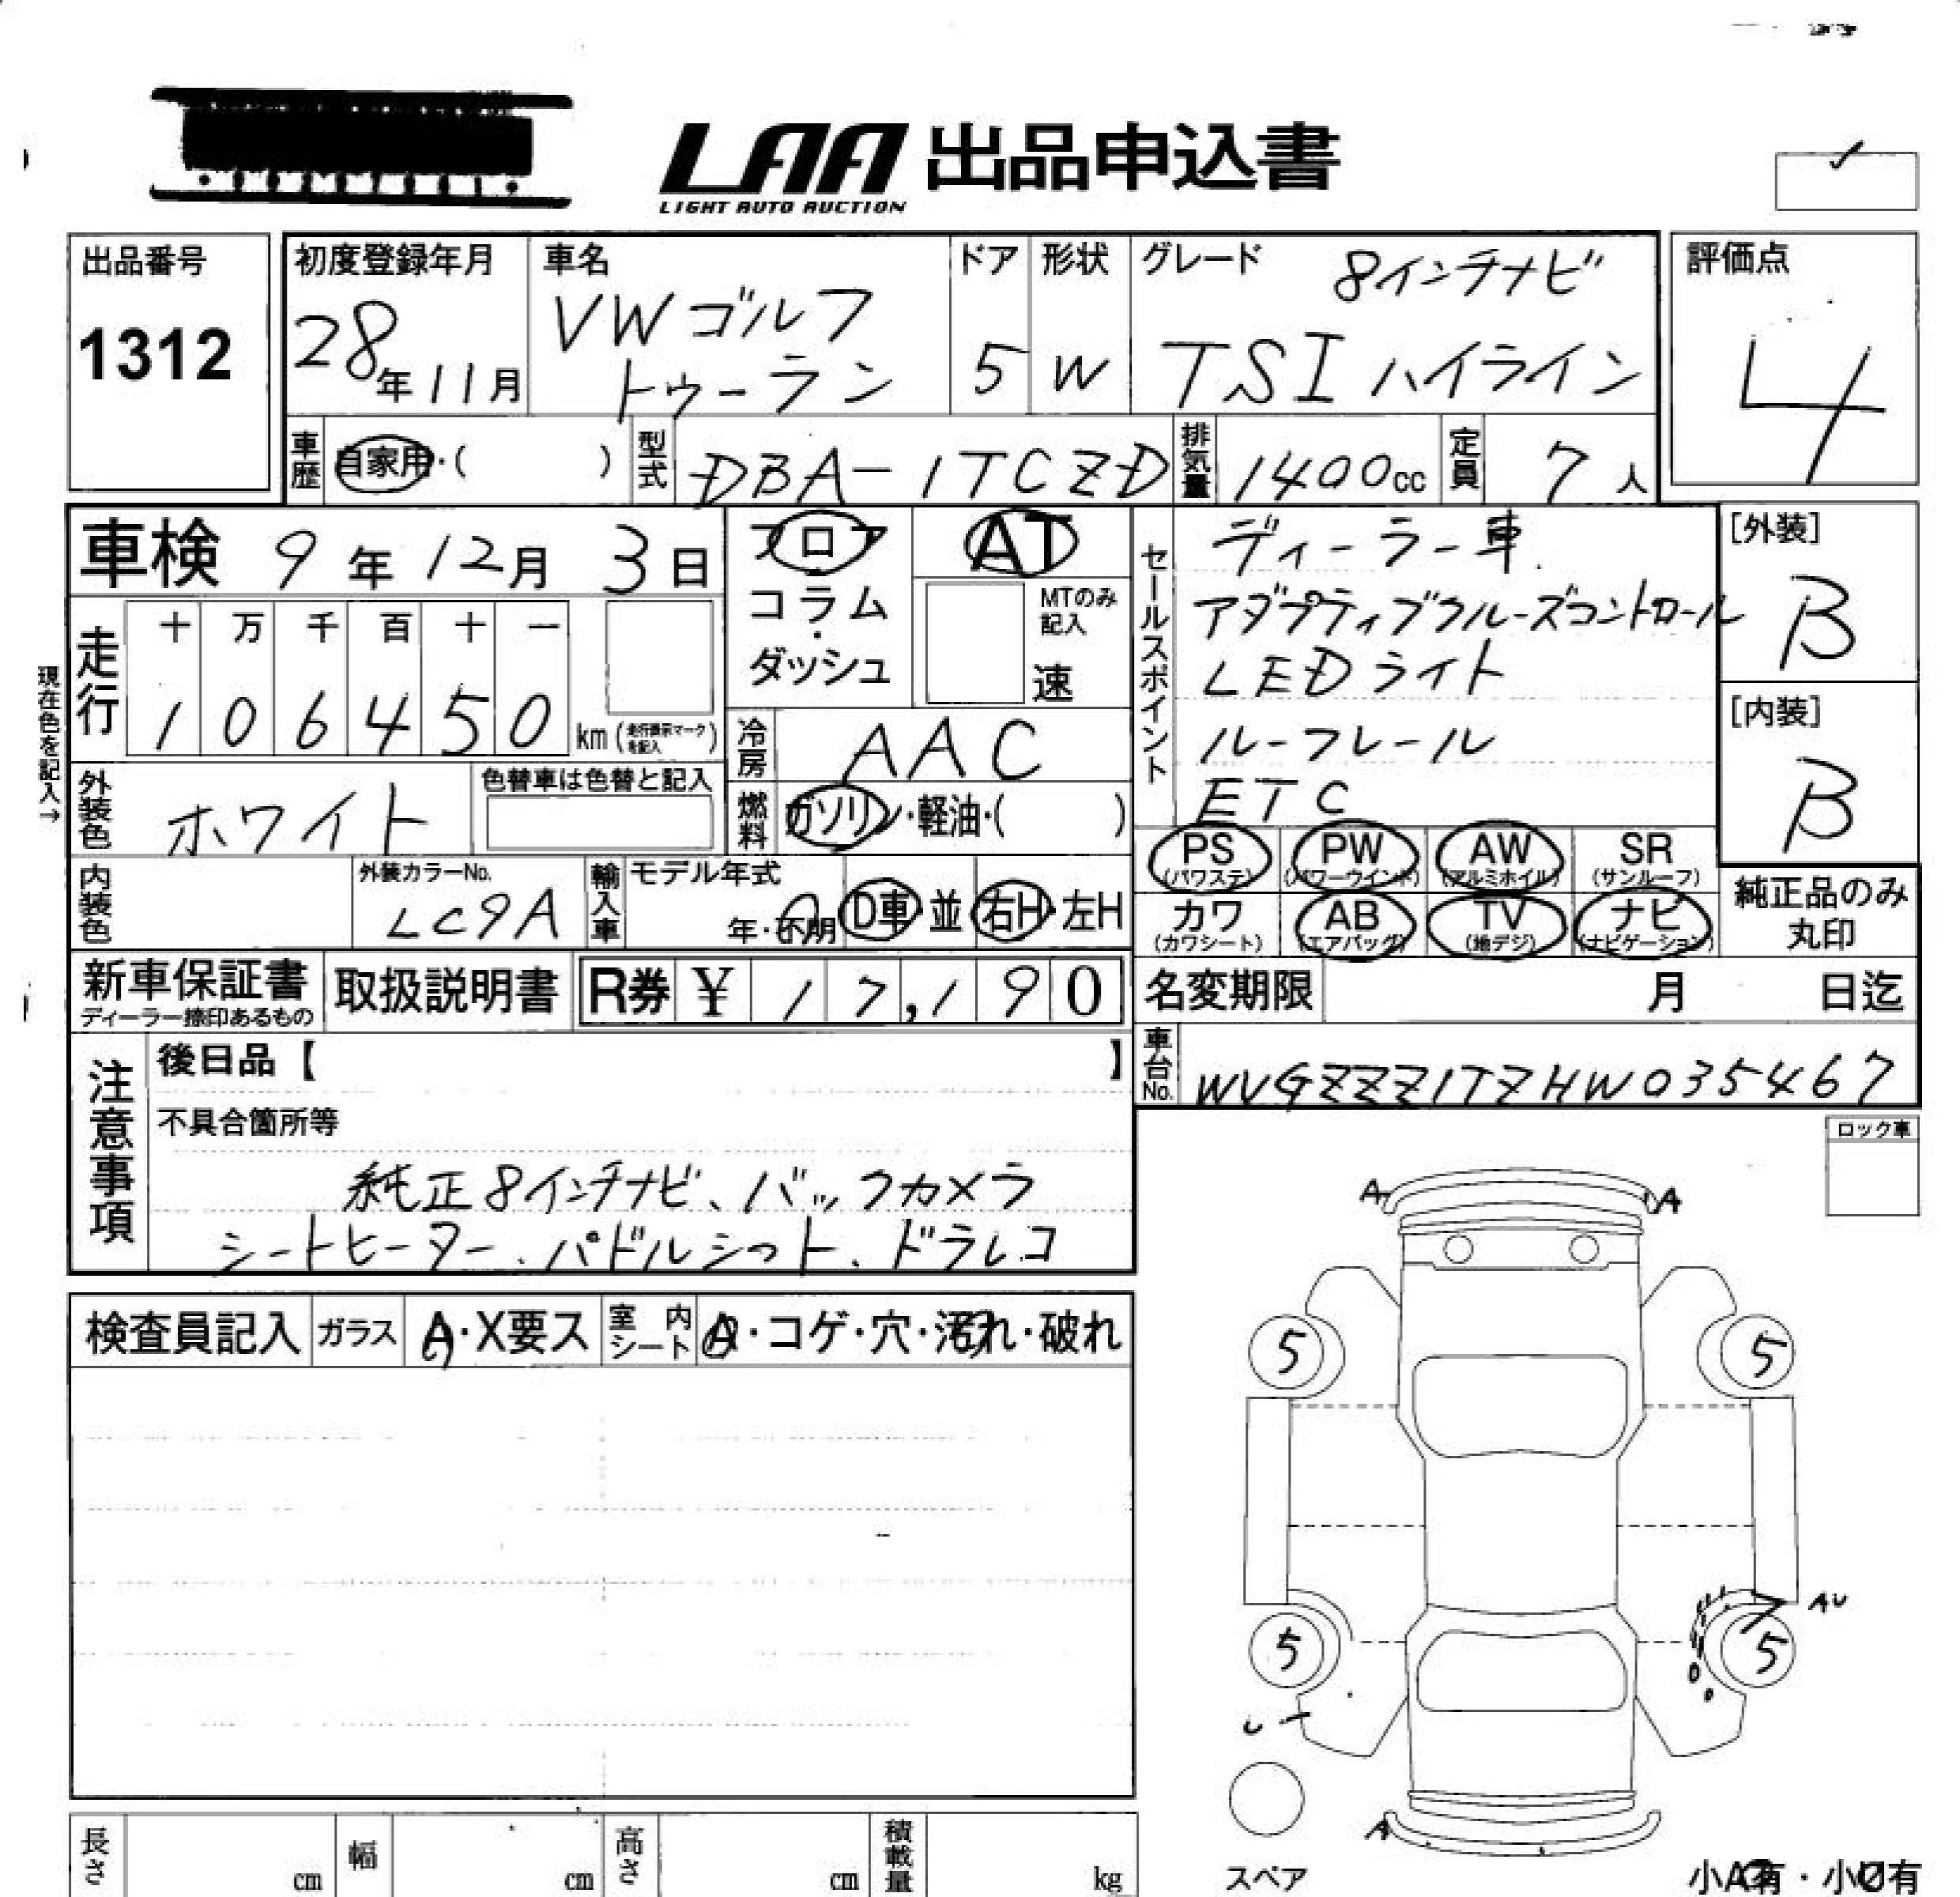 LAA 出品申込書
LIGHT AUTO AUCTION
出品番号
1312
初度登録年月
28年11月
車名
VW ゴルフ
トゥーラン
ドア
5
形状
W
グレード
8インチナビ
TSI ハイライン
評価点
4
車歴 自家用・( )
型式 DBA-1TCZD
排気量 1400cc
定員 7人
車検 9年12月3日
フロア
コラム
・
ダッシュ
AT
MTのみ
記入
速
セールスポイント
ディーラー車
アダプティブクルーズコントロール
LEDライト
ルーフレール
ETC
[外装]
B
[内装]
B
現在色を記入→
走行
十 万 千 百 十 一
1 0 6 4 5 0 km
冷房 AAC
外装色 ホワイト
色替車は色替と記入
燃料 ガソリン・軽油・( )
PS (パワステ)
PW (パワーウインド)
AW (アルミホイル)
SR (サンルーフ)
内装色
外装カラーNo.
LC9A
輸入車
モデル年式
年・不明
D車・並
右H・左H
カワ (カワシート)
AB (エアバッグ)
TV (地デジ)
ナビ (ナビゲーション)
純正品のみ
丸印
新車保証書
ディーラー捺印あるもの
取扱説明書
R券 ¥ 17,190
名変期限 月 日迄
車台No. WVGZZZ1TZHW035467
注意事項
後日品【 】
不具合箇所等
純正8インチナビ、バックカメラ
シートヒーター、パドルシフト、ドラレコ
ロック車
A A
検査員記入
ガラス A・X要ス
室内シート A・コゲ・穴・汚れ・破れ
5 5
AU
5 5
A
スペア
小A有・小U有
長さ cm
幅 cm
高さ cm
積載量 kg